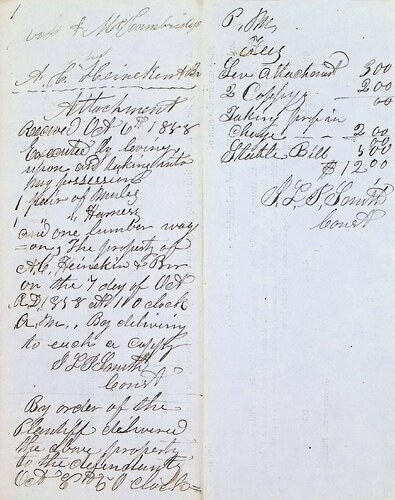 & McCambridge
A. C. Heineken & Br
Attachment
Received Oct 6th 1858
Executed by leving
upon and taking into
my possession
1 pair of Mules
1 " Harness
and one lumber wag
=on, The property of
A. C. Heinekin & Bro
on the 7 day of Oct
A.D. 1858 at 10 clock
A. M., By delivering
to each a coppy
J L P Smith
Const
By order of the
Plantiff delivered
the above property
to the defendants
Oct 8th 5 0 clock=
P. M.
Fees
Lev Attachment 3 00
2 Coppy - - 2 00
Taking prop in
charge - - 2 00
Stable Bill 5 00
$ 12 00
J. L. P. Smith
Const